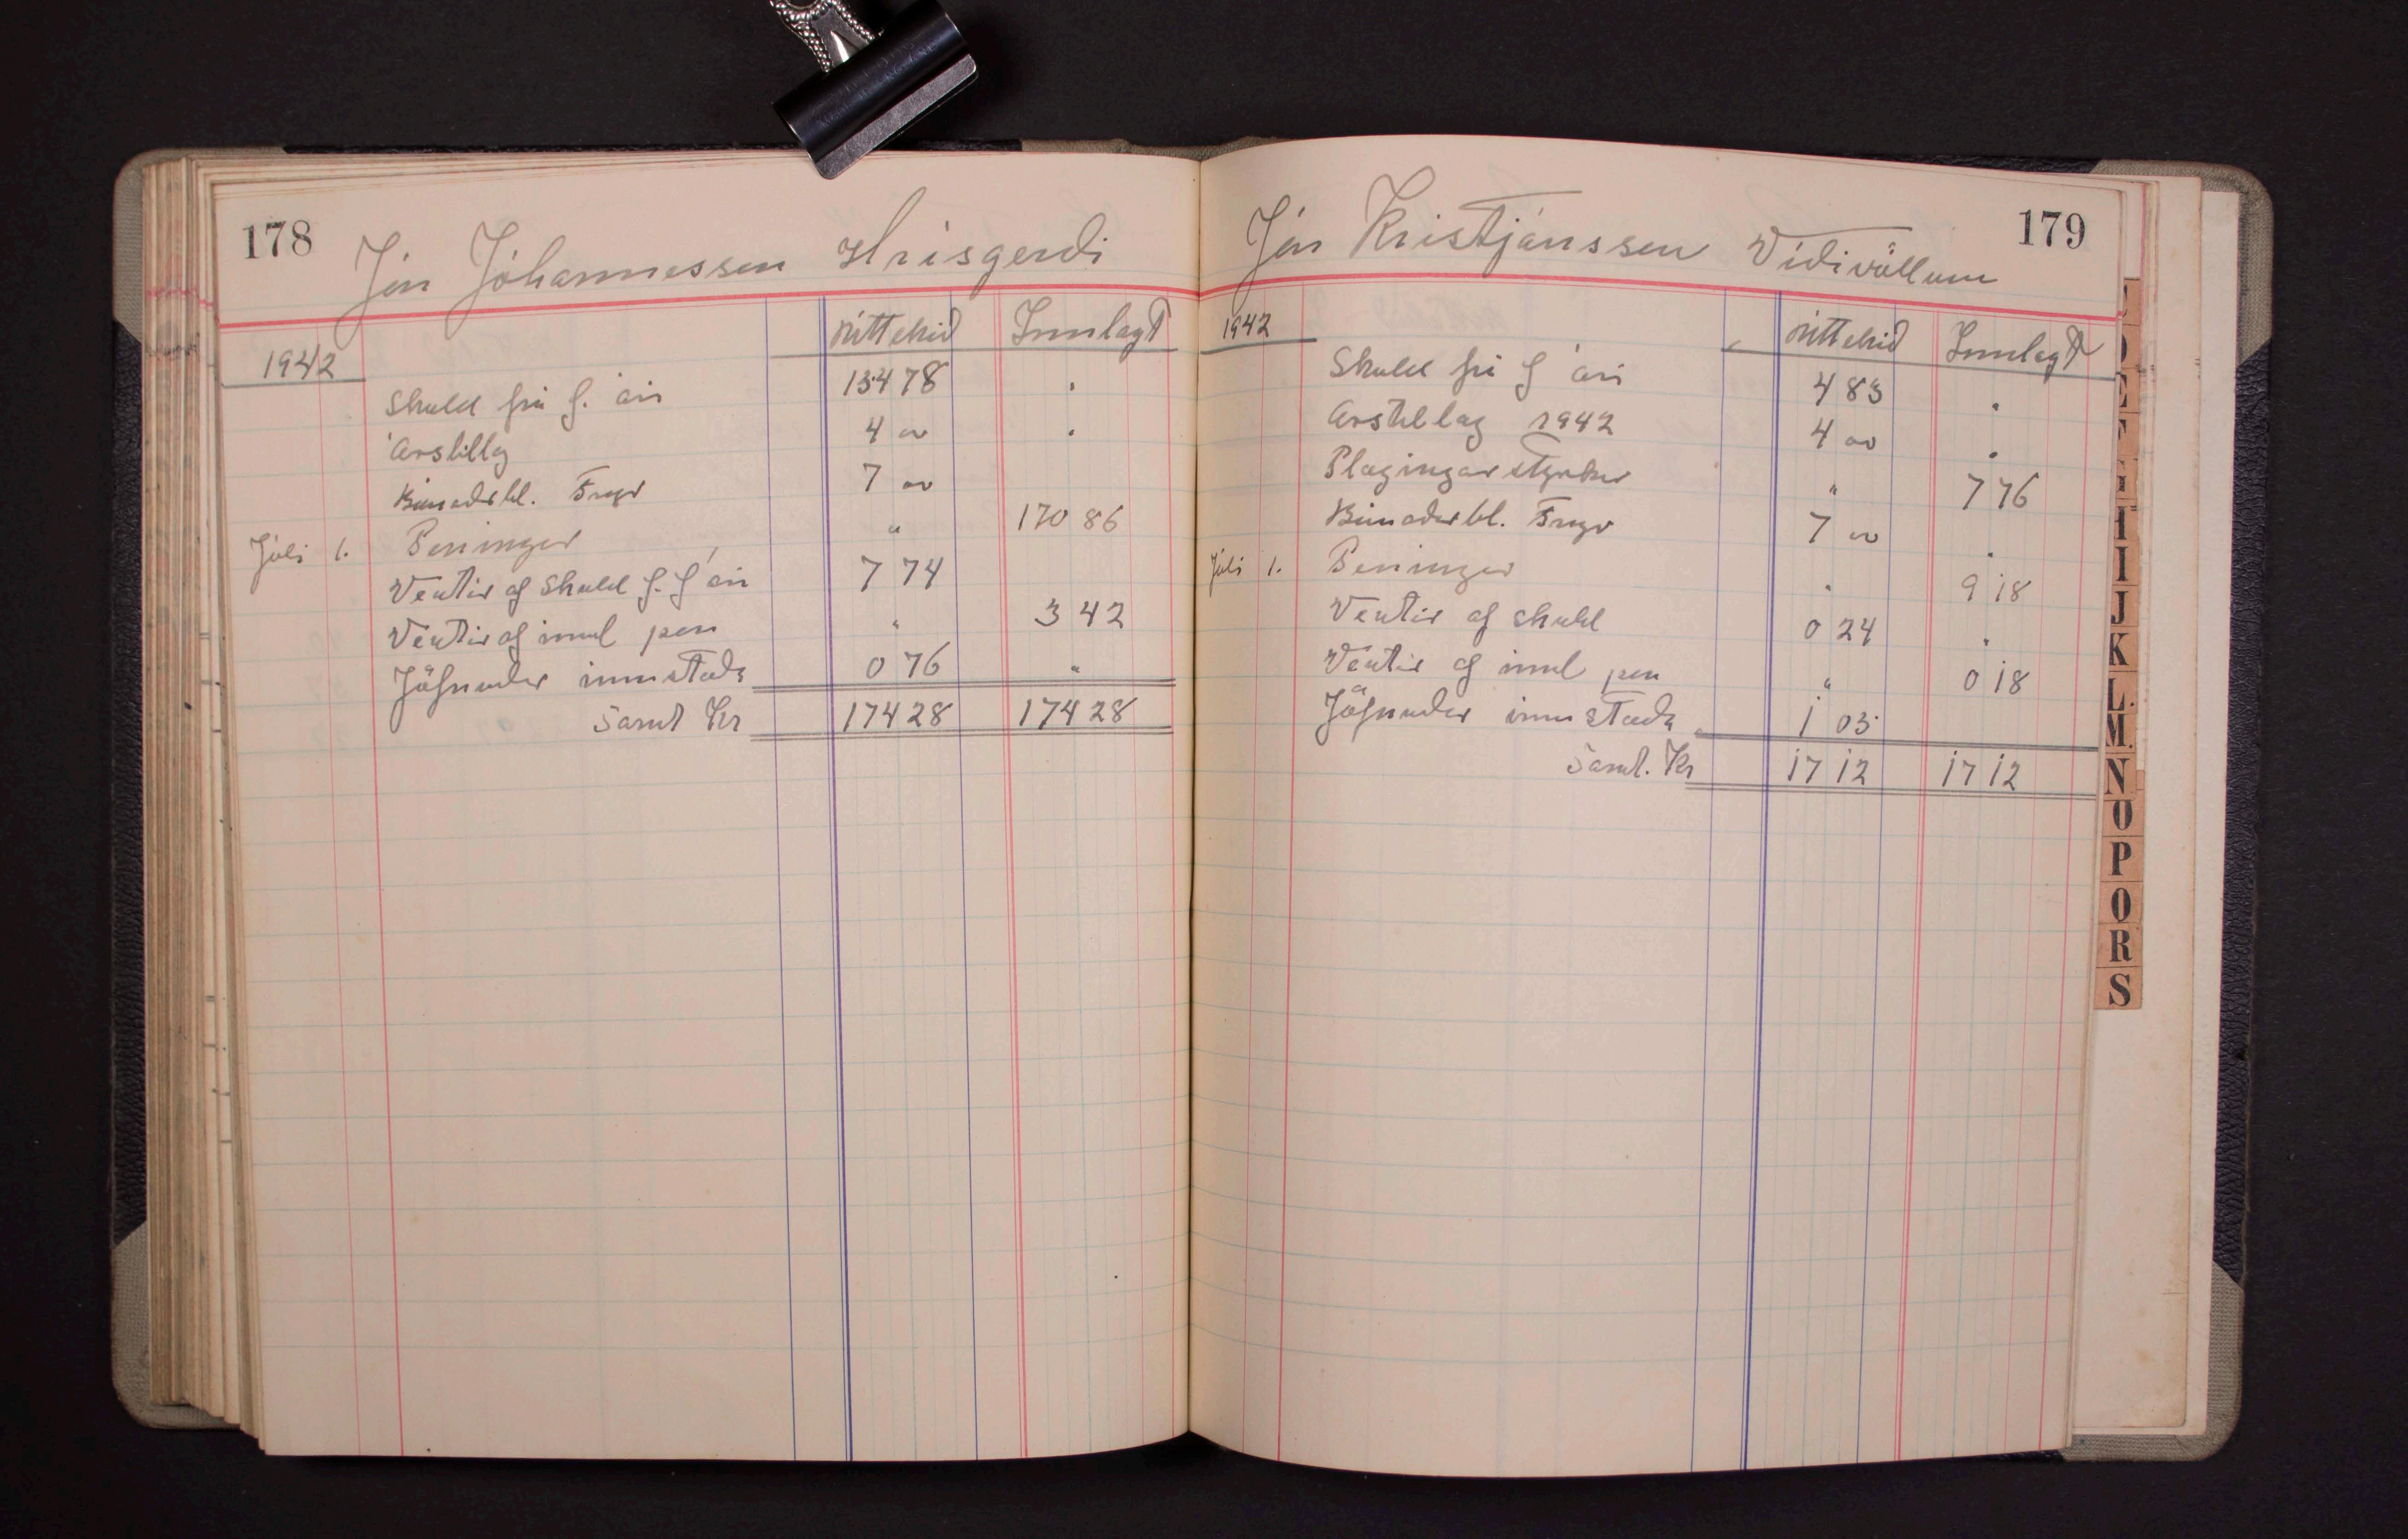 178
Jón Jóhannessen Hrísgerdi
úttekid Innlagt
1942
Skuld frá f. ári 154 78 "
Árstillag 4 00 "
Búnadarbl. Freyr 7 00
Júli 1. Peningar " 170 86
Vextir af skuld f. f ári 7 74
Vextir af innl pen " 3 42
Jöfnudur innstæda 0 76 "
Samt Kr 174 28 174 28
179
Jón Kristjánssen Vídivöllum
1942 úttekid Innlagt
Skuld frá f ári 4 85 "
Arstillag 1942 4 00 "
Plægingarstyrkur " 7 76
Búnadarbl. Freyr 7 00 "
Júli 1. Peningar " 9 18
Vextir af skuld 0 24 "
Vextir af innl pen " 0 18
Jöfnudur innstæda 1 03
Samt. Kr 17 12 17 12
E
F
G
H
I
J
K
L.
M.
N
O
P
Q
R
S